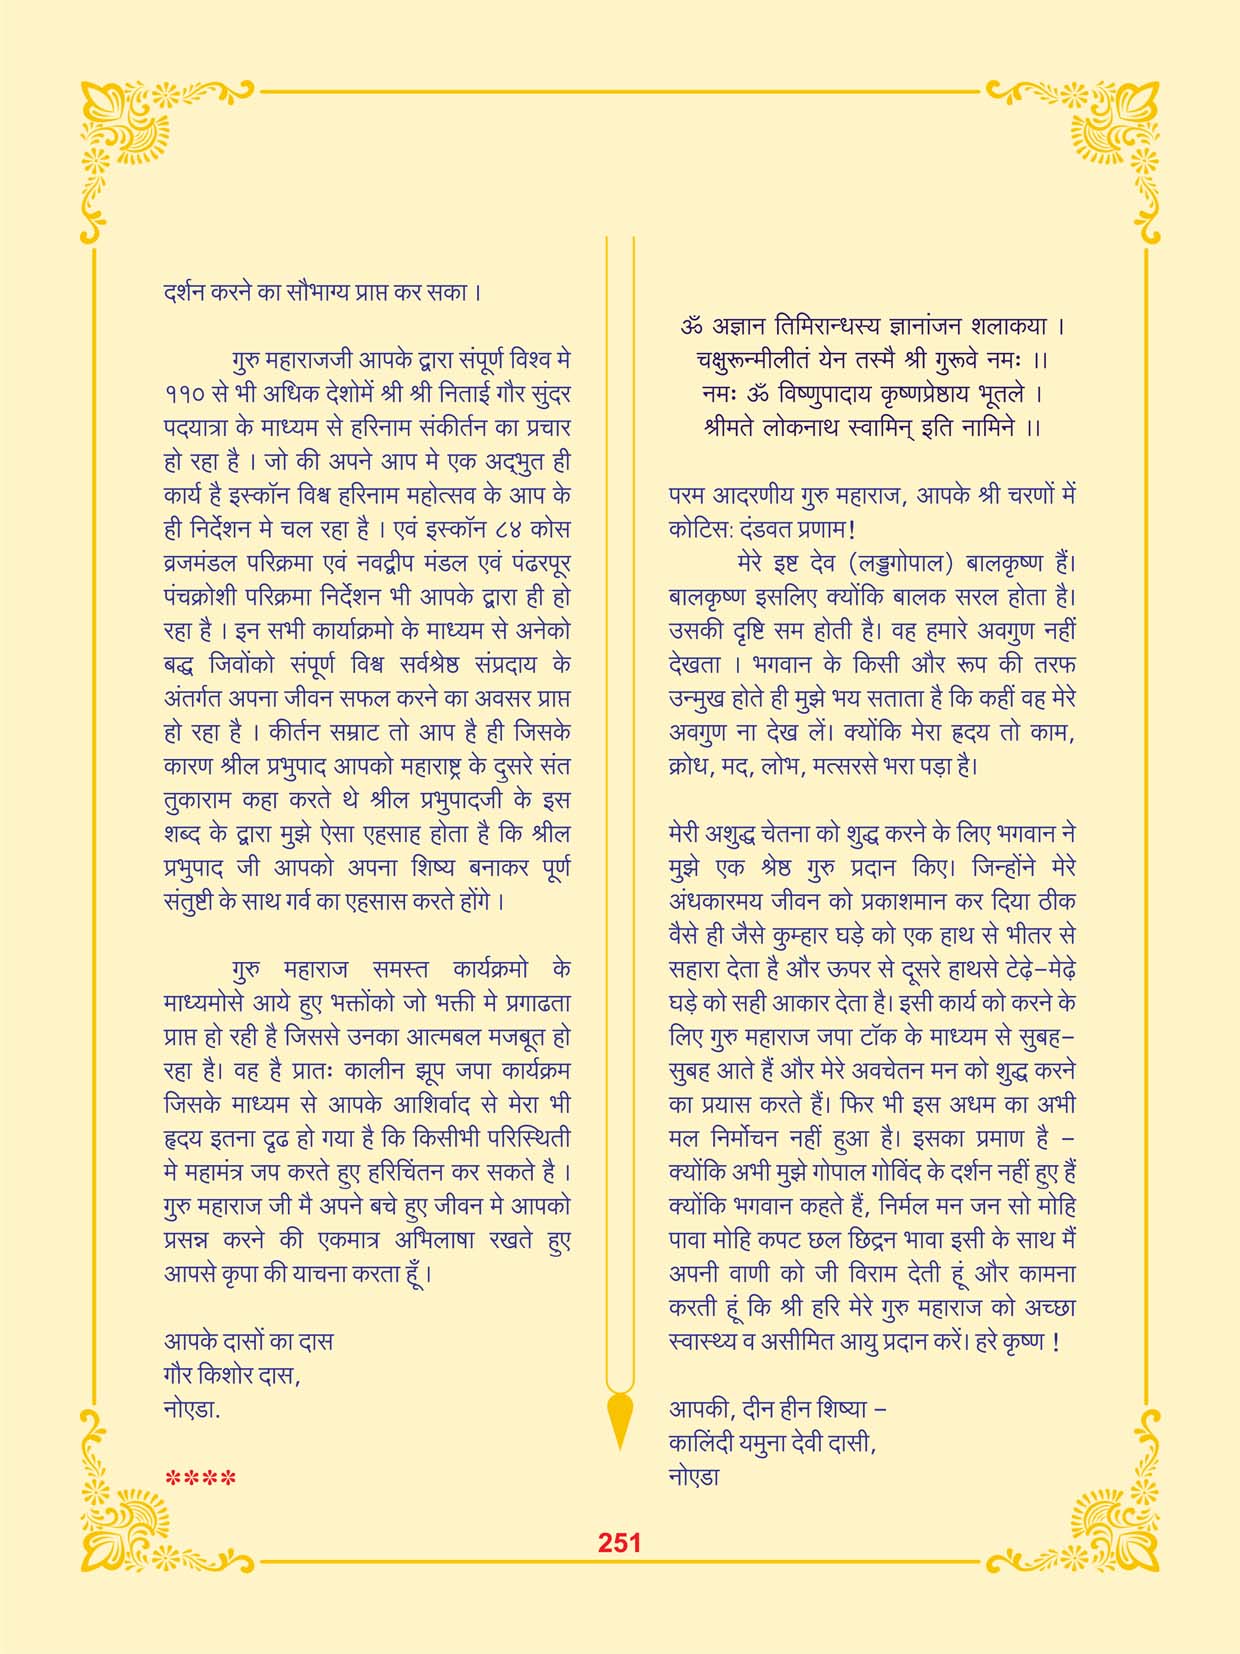 दर्शन करने का सौभाग्य प्राप्त कर सका ।
गुरु महाराजजी आपके द्वारा संपूर्ण विश्व मे
११० से भी अधिक देशोमें श्री श्री निताई गौर सुंदर
पदयात्रा के माध्यम से हरिनाम संकीर्तन का प्रचार
हो रहा है । जो की अपने आप मे एक अद्‌भुत ही
कार्य है इस्कॉन विश्व हरिनाम महोत्सव के आप के
ही निर्देशन मे चल रहा है । एवं इस्कॉन ८४ कोस
व्रजमंडल परिक्रमा एवं नवद्वीप मंडल एवं पंढरपूर
पंचक्रोशी परिक्रमा निर्देशन भी आपके द्वारा ही हो
रहा है । इन सभी कार्याक्रमो के माध्यम से अनेको
बद्ध जिवोंको संपूर्ण विश्व सर्वश्रेष्ठ संप्रदाय के
अंतर्गत अपना जीवन सफल करने का अवसर प्राप्त
हो रहा है । कीर्तन सम्राट तो आप है ही जिसके
कारण श्रील प्रभुपाद आपको महाराष्ट्र के दुसरे संत
तुकाराम कहा करते थे श्रील प्रभुपादजी के इस
शब्द के द्वारा मुझे ऐसा एहसाह होता है कि श्रील
प्रभुपाद जी आपको अपना शिष्य बनाकर पूर्ण
संतुष्टी के साथ गर्व का एहसास करते होंगे ।
गुरु महाराज समस्त कार्यक्रमो के
माध्यमोसे आये हुए भक्तोंको जो भक्ती मे प्रगाढता
प्राप्त हो रही है जिससे उनका आत्मबल मजबूत हो
रहा है। वह है प्रातः कालीन झूप जपा कार्यक्रम
जिसके माध्यम से आपके आशिर्वाद से मेरा भी
हृदय इतना दृढ हो गया है कि किसीभी परिस्थिती
मे महामंत्र जप करते हुए हरिचिंतन कर सकते है ।
गुरु महाराज जी मै अपने बचे हुए जीवन मे आपको
प्रसन्न करने की एकमात्र अभिलाषा रखते हुए
आपसे कृपा की याचना करता हूँ ।
आपके दासों का दास
गौर किशोर दास,
नोएडा.
****
ॐ अज्ञान तिमिरान्धस्य ज्ञानांजन शलाकया ।
चक्षुरून्मीलीतं येन तस्मै श्री गुरूवे नमः ।।
नमः ॐ विष्णुपादाय कृष्णप्रेष्ठाय भूतले ।
श्रीमते लोकनाथ स्वामिन् इति नामिने ।।
परम आदरणीय गुरु महाराज, आपके श्री चरणों में
कोटिस: दंडवत प्रणाम!
मेरे इष्ट देव (लड्डगोपाल) बालकृष्ण हैं।
बालकृष्ण इसलिए क्योंकि बालक सरल होता है।
उसकी दृष्टि सम होती है। वह हमारे अवगुण नहीं
देखता । भगवान के किसी और रूप की तरफ
उन्मुख होते ही मुझे भय सताता है कि कहीं वह मेरे
अवगुण ना देख लें। क्योंकि मेरा ह्रदय तो काम,
क्रोध, मद, लोभ, मत्सरसे भरा पड़ा है।
मेरी अशुद्ध चेतना को शुद्ध करने के लिए भगवान ने
मुझे एक श्रेष्ठ गुरु प्रदान किए। जिन्होंने मेरे
अंधकारमय जीवन को प्रकाशमान कर दिया ठीक
वैसे ही जैसे कुम्हार घड़े को एक हाथ से भीतर से
सहारा देता है और ऊपर से दूसरे हाथसे टेढ़े-मेढ़े
घड़े को सही आकार देता है। इसी कार्य को करने के
लिए गुरु महाराज जपा टॉक के माध्यम से सुबह-
सुबह आते हैं और मेरे अवचेतन मन को शुद्ध करने
का प्रयास करते हैं। फिर भी इस अधम का अभी
मल निर्मोचन नहीं हुआ है। इसका प्रमाण है -
क्योंकि अभी मुझे गोपाल गोविंद के दर्शन नहीं हुए हैं
क्योंकि भगवान कहते हैं, निर्मल मन जन सो मोहि
पावा मोहि कपट छल छिद्रन भावा इसी के साथ मैं
अपनी वाणी को जी विराम देती हूं और कामना
करती हूं कि श्री हरि मेरे गुरु महाराज को अच्छा
स्वास्थ्य व असीमित आयु प्रदान करें। हरे कृष्ण !
आपकी, दीन हीन शिष्या -
कालिंदी यमुना देवी दासी,
नोएडा
251